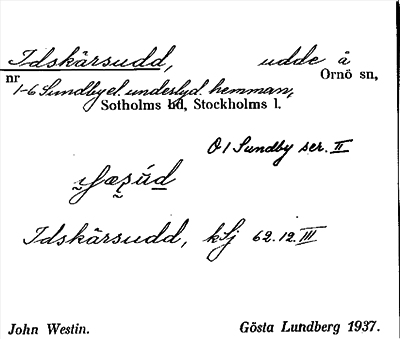 Idskärsudd, udde å
nr Ornö sn,
1-6 Sundby el. underlyd. hemman,
Sotholms hd, Stockholms l.
O1 Sundby ser. II
Idskärsudd, kSj 62.12.III
John Westin. Gösta Lundberg 1937.